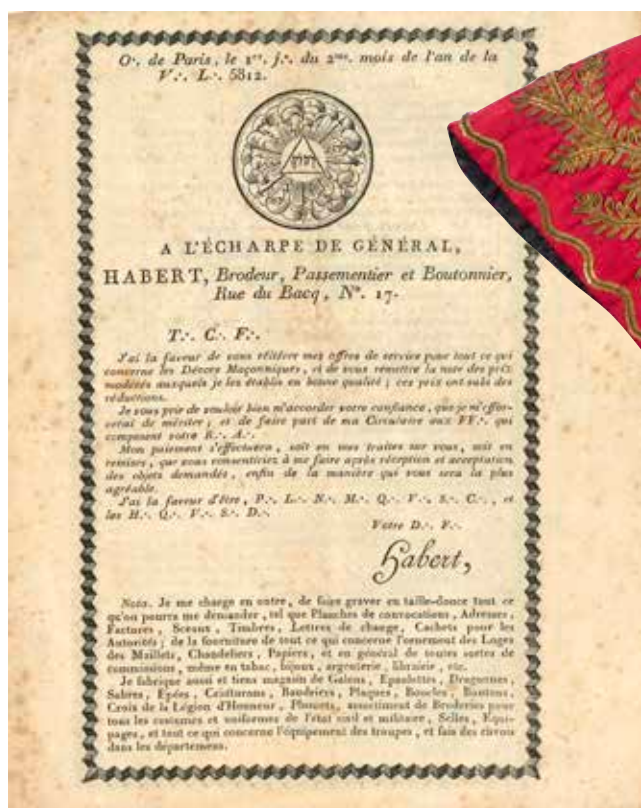 O∴ de Paris, le 1er. j∴ du 2me. mois de l'an de la
V∴ L∴ 5812.
יהוה
A L'ÉCHARPE DE GÉNÉRAL,
HABERT, Brodeur, Passementier et Boutonnier,
Rue du Bacq, N°. 17.
T∴ C∴ F∴
J'ai la faveur de vous réitérer mes offres de service pour tout ce qui
concerne les Décors Maçonniques, et de vous remettre la note des prix
modérés auxquels je les établis en bonne qualité ; ces prix ont subi des
réductions.
Je vous prie de vouloir bien m'accorder votre confiance, que je m'effor-
cerai de mériter ; et de faire part de ma Circulaire aux FF∴ qui
composent votre R∴ A∴
Mon paiement s'effectuera, soit en mes traites sur vous, soit en
remises, que vous consentiriez à me faire après réception et acceptation
des objets demandés, enfin de la manière qui vous sera la plus
agréable.
J'ai la faveur d'être, P∴ L∴ N∴ M∴ Q∴ V∴ S∴ C∴, et
les H∴ Q∴ V∴ S∴ D∴
Votre D∴ F∴
Habert,
Nota. Je me charge en outre, de faire graver en taille-douce tout ce
qu'on pourra me demander, tel que Planches de convocations, Adresses,
Factures, Sceaux, Timbres, Lettres de change, Cachets pour les
Autorités ; de la fourniture de tout ce qui concerne l'ornement des Loges
des Maillets, Chandeliers, Papiers, et en général de toutes sortes de
commissions, même en tabac, bijoux, argenterie, librairie, etc.
Je fabrique aussi et tiens magasin de Galons, Epaulettes, Dragonnes,
Sabres, Epées, Ceinturons, Baudriers, Plaques, Boucles, Boutons,
Croix de la Légion d'Honneur, Plumets, assortiment de Broderies pour
tous les costumes et uniformes de l'état civil et militaire, Selles, Equi-
pages, et tout ce qui concerne l'équipement des troupes, et fais des envois
dans les départemens.